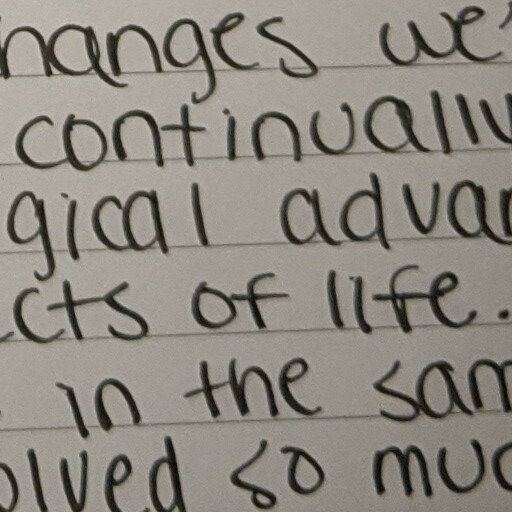 hanges we'
continually
gical advan
cts of life.
in the sam
olved so muc